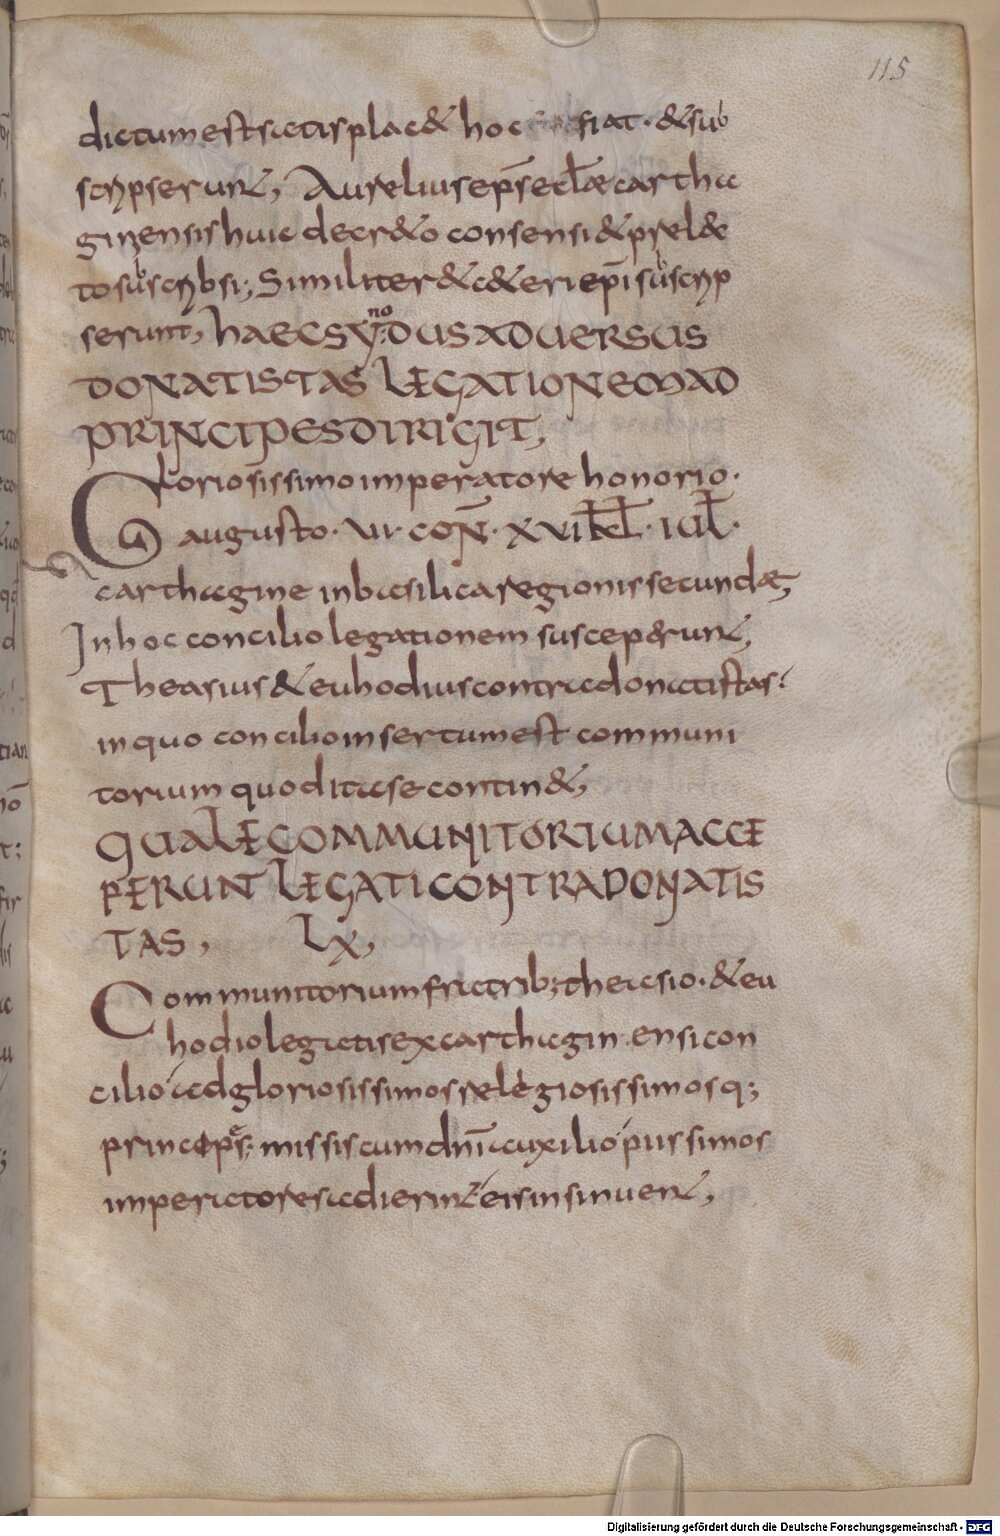 115
dictum est satis placet hoc fiat. & sub
scripserunt, Aurelius ep̄s ecl̄ae cartha
ginensis huic decr&o consensi & prelec
to subscribsi; Similiter & c&eri ep̄i subscrip
serunt, HAEC SYNODUS ADUERSUS
DONATISTAS LEGATIONEM AD
PRINCIPES DIRIGIT,
Gloriosissimo imperatore honorio.
augusto. VI. COÑ. XVI KL̄. IUL̄.
carthagine in basilica regionis secundae,
In hoc concilio legationem suscep&runt,
Theasius & euhodius contra donatistas.
in quo concilio insertum est communi
torium quod ita se contin&,
QUALE COMMUNITORIUM ACCE
PERUNT LEGATI CONTRA DONATIS
TAS, LX,
Communitorium fratrib; theasio. & eu
hodio legatis ex carthaginensi con
cilio ad gloriosissimos religiosissimosq;
princepes: missis cum dn̄i auxilio piissimos
imperatores adierint eis insinuent,
Digitalisierung gefördert durch die Deutsche Forschungsgemeinschaft - DFG